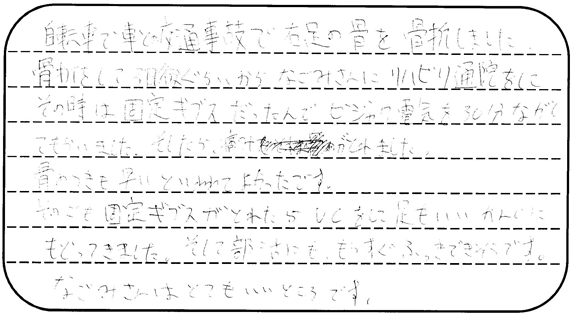 自転車で車と交通事故で右足の骨を骨折しました。
骨折をして3日後ぐらいからなごみさんにリハビリ通院をし
その時は固定ギブスだったんでビジョの電気を30分ながし
てもらいました。そしたら、痛みがとれました。
骨のつきも早いといわれてよかったです。
そのごも固定ギブスがとれたらLLCをして足もいいかんじに
もどってきました。そして部活にも、もうすぐふっきできそうです。
なごみさんはとてもいいところです。